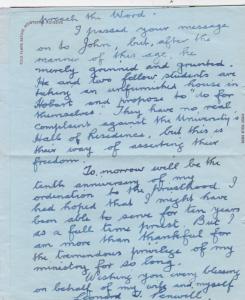 preach the Word.
I passed your message
on to John, but, after the
manner of this age, he
merely grinned and grunted.
He and two fellow students are
taking an unfurnished house in
Hobart and propose to "do for
themselves". They have no real
complaint against the University's
Halls of Residence, but this is
their way of asserting their
freedom.
To-morrow will be the
tenth anniversary of my
ordination to the priesthood. I
had hoped that I might have
been able to serve for ten years
as a full time priest. But I
am more than thankful for
the tremendous privilege of my
ministry for so long.
Wishing you every blessing
on behalf of my wife and myself
Leonard